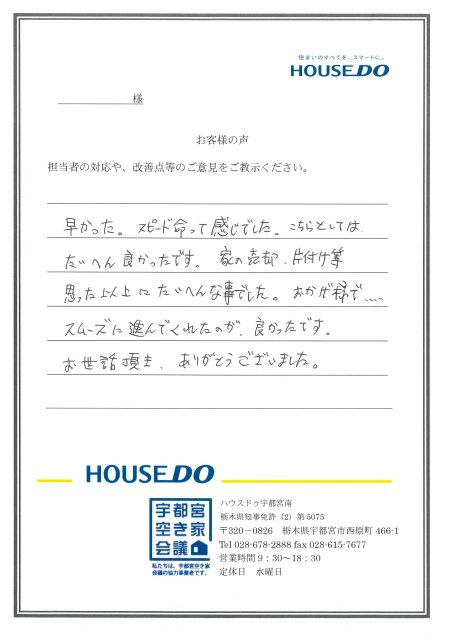 住まいのすべてを、スマートに。
HOUSEDO
様
お客様の声
担当者の対応や、改善点等のご意見をご教示ください。
早かった。スピード命って感じでした。こちらとしては
たいへん良かったです。家の売却、片付け等
思った以上にたいへんな事でした。おかが様で....
スムーズに進んでくれたのが、良かったです。
お世話頂き、ありがとうございました。
HOUSEDO
宇都宮
空き家
会議
私たちは、宇都宮空き家
会議の協力事業者です。
ハウスドゥ宇都宮南
栃木県知事免許（2）第5075
〒320－0826　栃木県宇都宮市西原町 466-1
Tel 028-678-2888 fax 028-615-7677
営業時間 9：30～18：30
定休日　水曜日